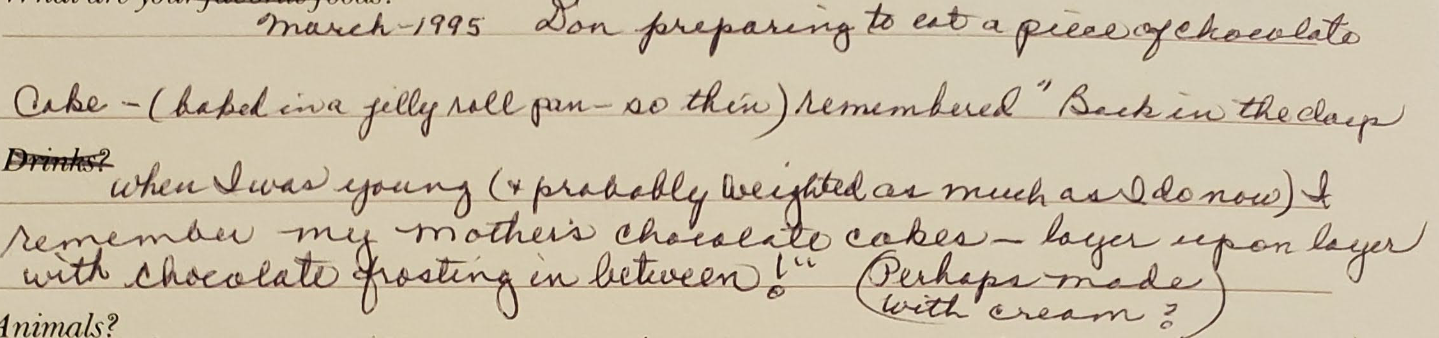 What are your favorite foods?
March-1995 Don preparing to eat a piece of chocolate
Cake - (baked in a jelly roll pan - so thin) remembered "Back in the days
Drinks?
when I was young (& probably weighted as much as I do now) I
remember my mother's chocolate cakes - layer upon layer
with chocolate frosting in between!" (Perhaps made
with cream?)
Animals?